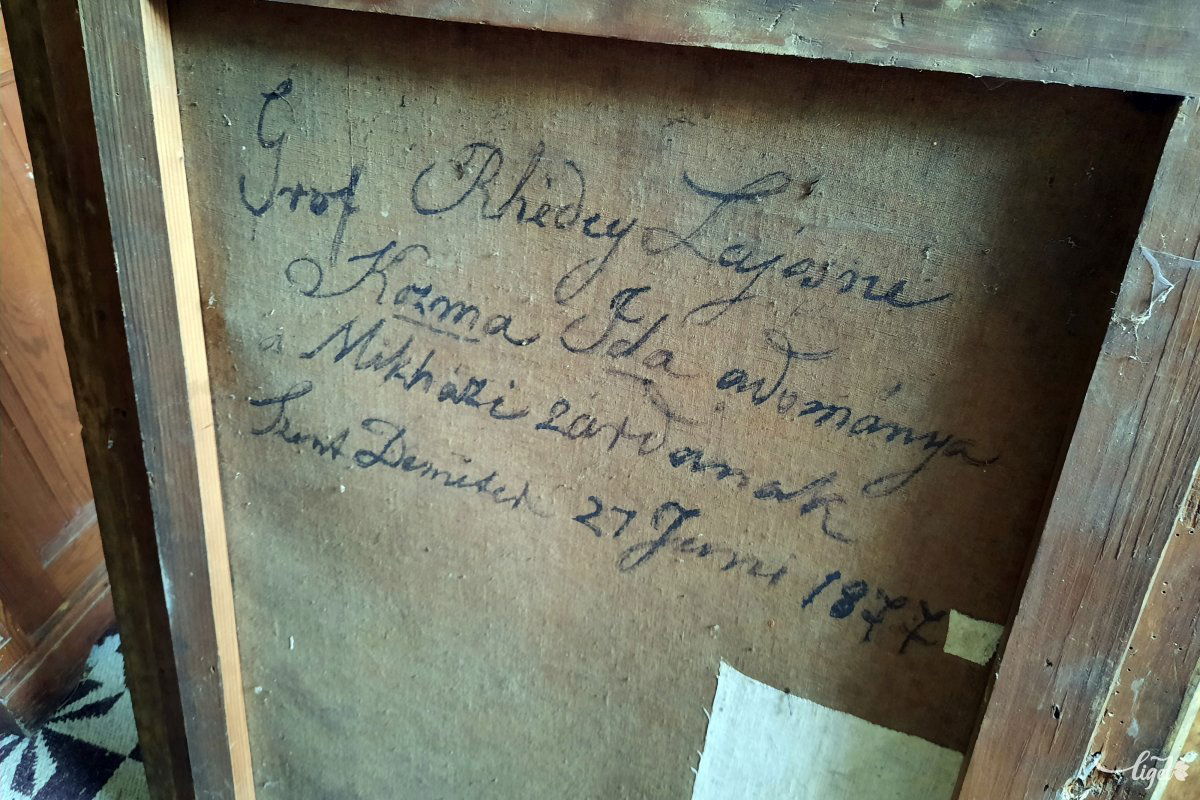 Gróf Rhédey Lajosné
Kozma Ida adománya
a Mikházi zárdanak
Szent Demeter 27 Juni 1877
liget